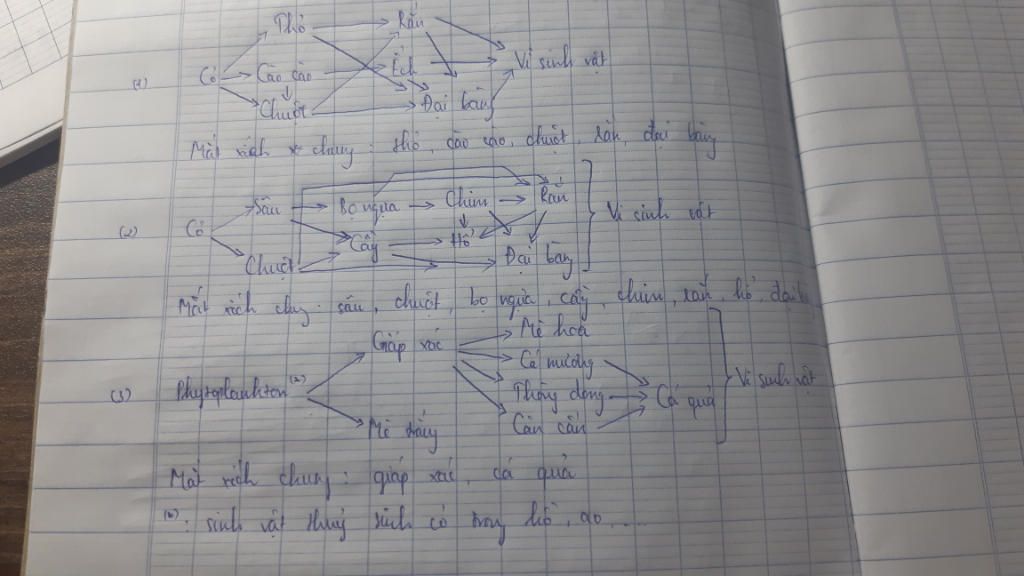 Thỏ Rắn
(1) Cỏ Cào cào Ếch Vi sinh vật
Chuột Đại bàng
Mắt xích chung: thỏ, cào cào, chuột, rắn, đại bàng
Sâu Bọ ngựa Chim Rắn
(2) Cỏ Cầy Hổ Vi sinh vật
Chuột Đại bàng
Mắt xích chung: sâu, chuột, bọ ngựa, cầy, chim, rắn, hổ, đại
Giáp xác Mè hoa
Cá mương
(3) Phytoplankton(*) Thòng đong Cá quả Vi sinh vật
Mè trắng Cân cấn
Mắt xích chung: giáp xác, cá quả
(*): sinh vật thuỷ sinh có trong hồ, ao,....